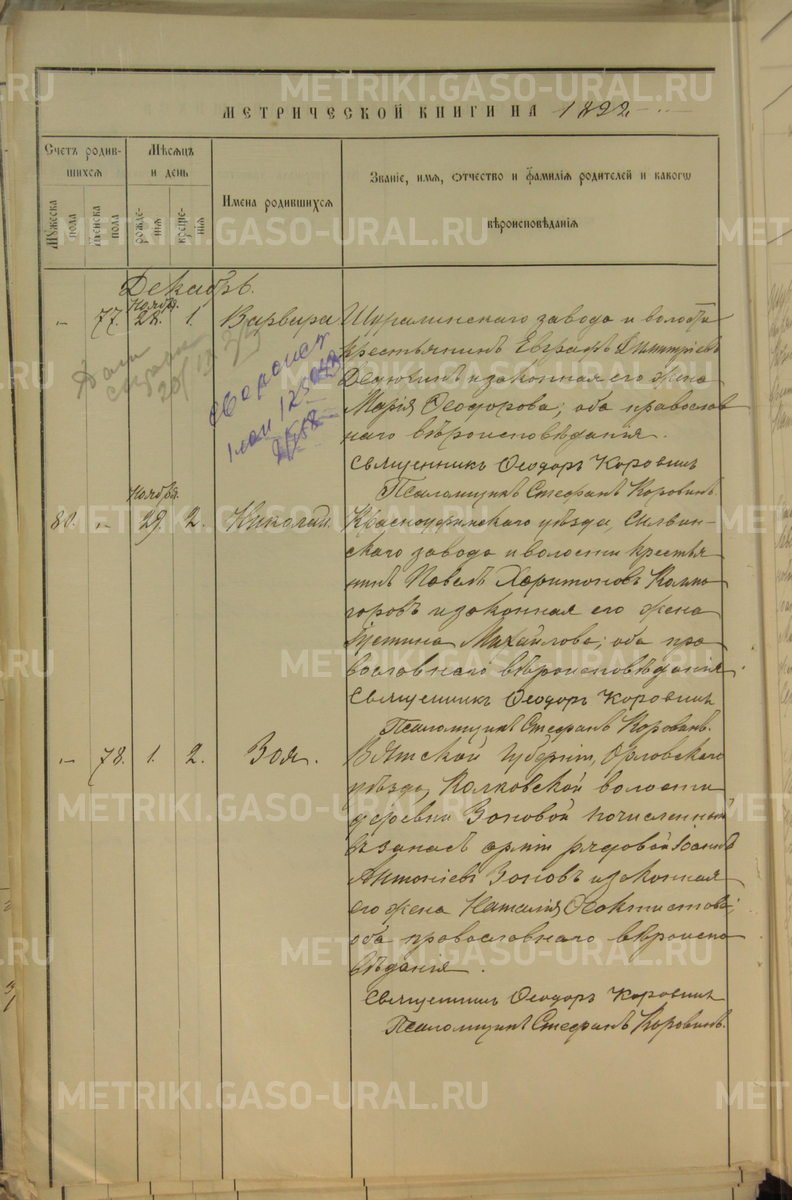 МЕТРИЧЕСКОЙ КНИГИ НА 1892
Счетъ родив-
шихся
Мѣсяцъ
и день
Мужеска
пола
Женска
пола
рожде-
нія
креще-
нія
Имена родившихся
Званіе, имя, отчество и фамилія родителей и какого
вѣроисповѣданія
Декабрь.
Ноября
77. 28. 1. Варвара
Шуралинскаго завода и волости
крестьянинъ Евграфъ Димитріевъ
и законная его жена
Марія Ѳеодорова; оба православ
наго вѣроисповѣданія.
Священникъ Ѳеодоръ Коровинъ
Псаломщикъ Стефанъ Коровинъ.
Ноября
29. 2. Николай.
Красноуфимскаго уѣзда, Сылвин-
скаго завода и волости крестья
нинъ Павелъ Харитоновъ Колмо
горовъ и законная его жена
Іустина Михайлова; оба пра
вославнаго вѣроисповѣданія.
Священникъ Ѳеодоръ Коровинъ
Псаломщикъ Стефанъ Коровинъ.
78. 1. 2. Зоя.
Вятской губерніи, Орловскаго
уѣзда, волости
деревни Зоновой
въ запасъ арміи рядовой Іоаннъ
Антоніевъ Зоновъ и законная
его жена Наталія Ѳеоктистова;
оба православнаго вѣроиспо
вѣданія.
Священникъ Ѳеодоръ Коровинъ
Псаломщикъ Стефанъ Коровинъ.
METRIKI.GASO-URAL.RU